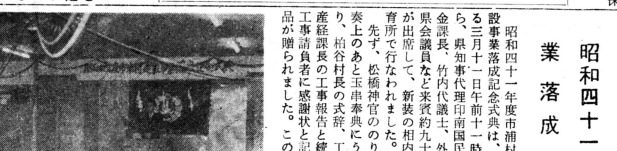 昭和四十一
業落成
昭和四十一年度市浦村
設事業落成記念式典は、
る三月十一日午前十一時
ら、県知事代理印南国民
金課長、竹内代議士、外
県会議員など来賓約九十
が出席して、新装の相内
育所で行なわれました。
先ず、松橋神官ののり
奏上のあと玉串奉典にう
り、柏谷村長の式辞、工
産経課長の工事報告と続
工事請負者に感謝状と記
品が贈られました。この